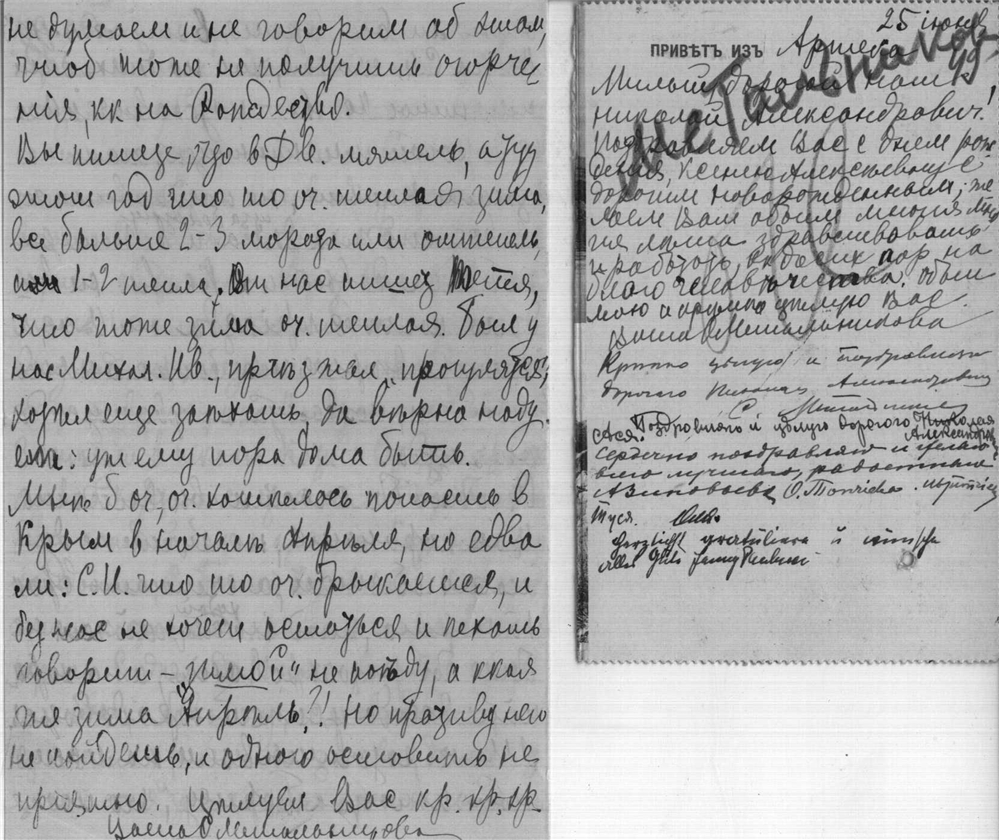 не думаем и не говорим об этом,
чтоб тоже не получить огорче
нія, кк на Рождество.
Вы пишете, что в Дв. мятель, а тут
этот год что то оч. теплая зима,
все больше 2-3 мороза или оттепель,
1-2 тепла. От нас пишет Тетя,
что тоже зима оч. теплая. Был у
нас Михал. Ив., пріѣзжал „прогуляться",
хотел еще заѣхать, да вѣрно наду
ем: уж ему пора дома быть.
Мнѣ б оч, оч. хотелось попасть в
Крым в началѣ Апрѣля, но едва
ли: С. И. что то оч. брыкается, и
без нас не хочет остаться и ѣхать
говорит – „зимой" не поѣду, а ккая
же зима Апрѣль?! Но противу него
не пойдешь, и одного оставить не
пріятно. Цѣлуем Вас кр. кр. кр.
Ваша О. Метальникова
25 іюня
ПРИВѢТЪ ИЗЪ Артека
Милый, дорогой наш
Николай Александрович!
Поздравляем Вас с днем рож
денія, Ксенію Алексѣевну с
дорогим новорожденным, же
лаем Вам обоим многія мно
гія лѣта здравствовать
и работать, кк до сих пор на
благо человѣчества. Обни
маю и крѣпко цѣлую Вас
Ваша О. Метальникова
Крѣпко цѣлую и поздравляю
дорогого Николая Александровича
С. Метальников
Ася. Поздравляю и цѣлую дорогого Николая
Александровича
Сердечно поздравляю и желаю
всего лучшаго, радостнаго
Туся. Оля
Herzlichst gratuliere u wünsche
alles Gute